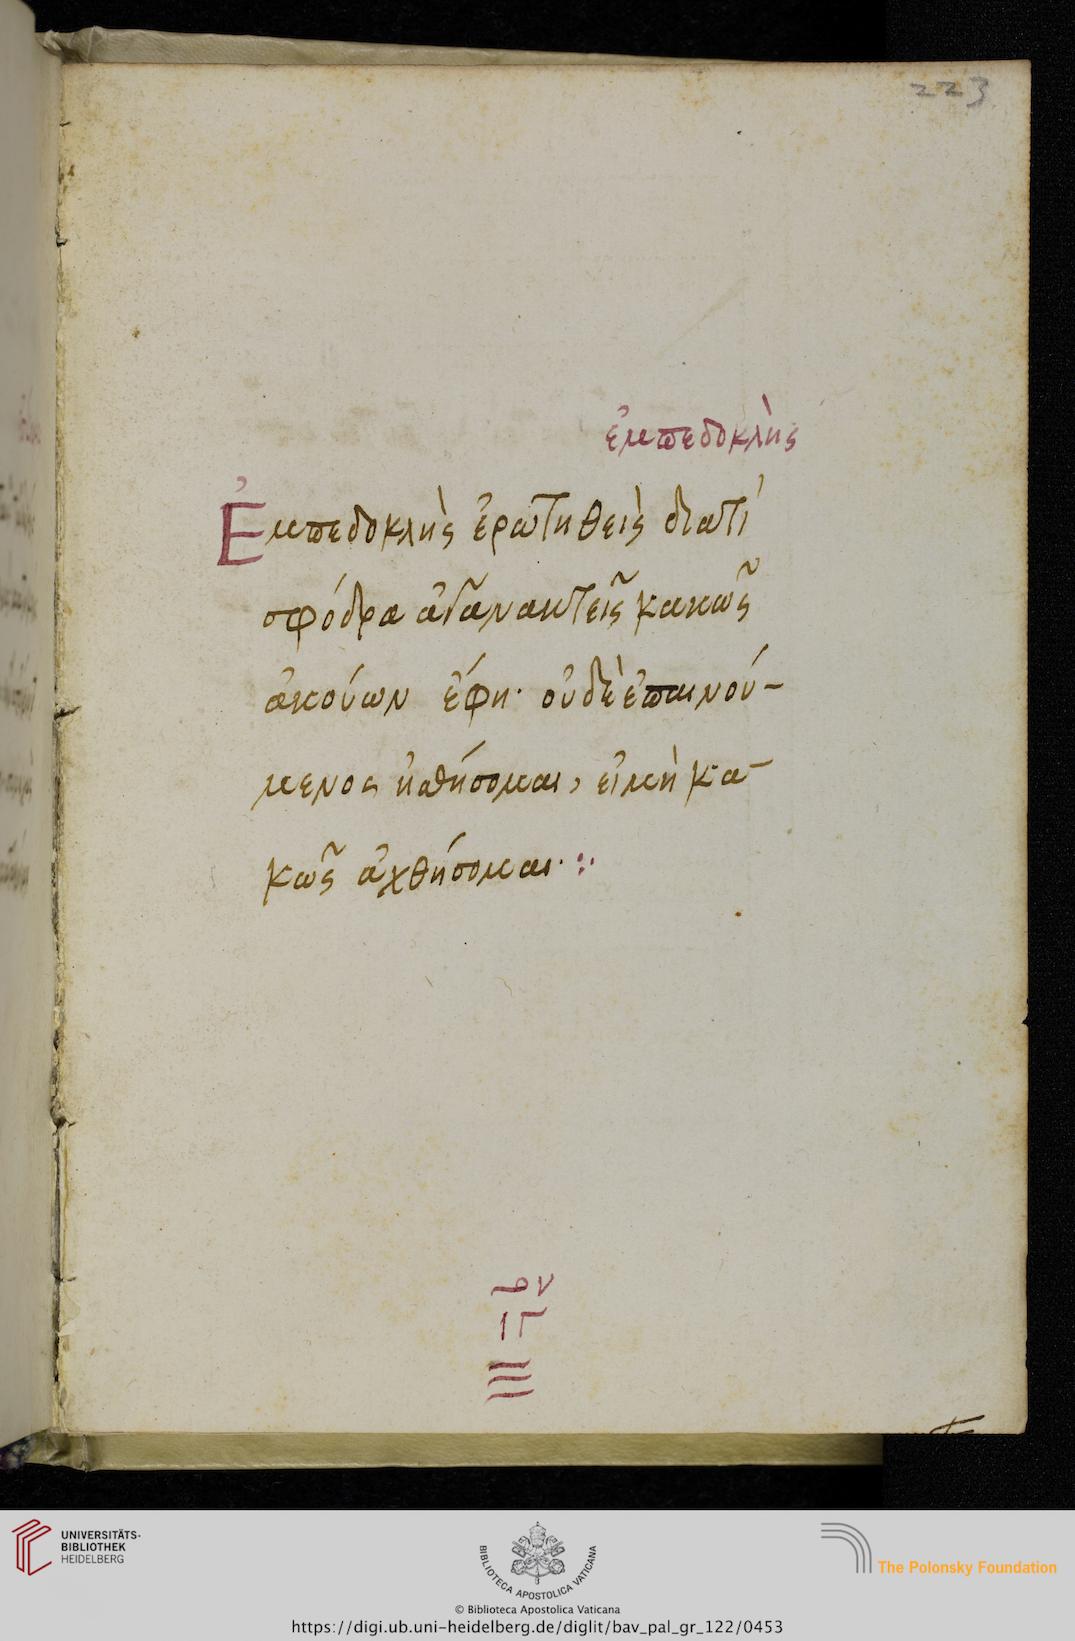 223
ἐμπεδοκλὴς
Ἐμπεδοκλὴς ἐρωτηθεὶς διατί
σφόδρα ἀγανακτεῖς κακῶς
ἀκούων ἔφη· οὐδὲ ἐπαινού-
μενος ἡσθήσομαι, εἰ μὴ κα-
κῶς ἀχθήσομαι· :·
UNIVERSITÄTS-
BIBLIOTHEK
HEIDELBERG
BIBLIOTECA APOSTOLICA VATICANA
The Polonsky Foundation
© Biblioteca Apostolica Vaticana
https://digi.ub.uni-heidelberg.de/diglit/bav_pal_gr_122/0453